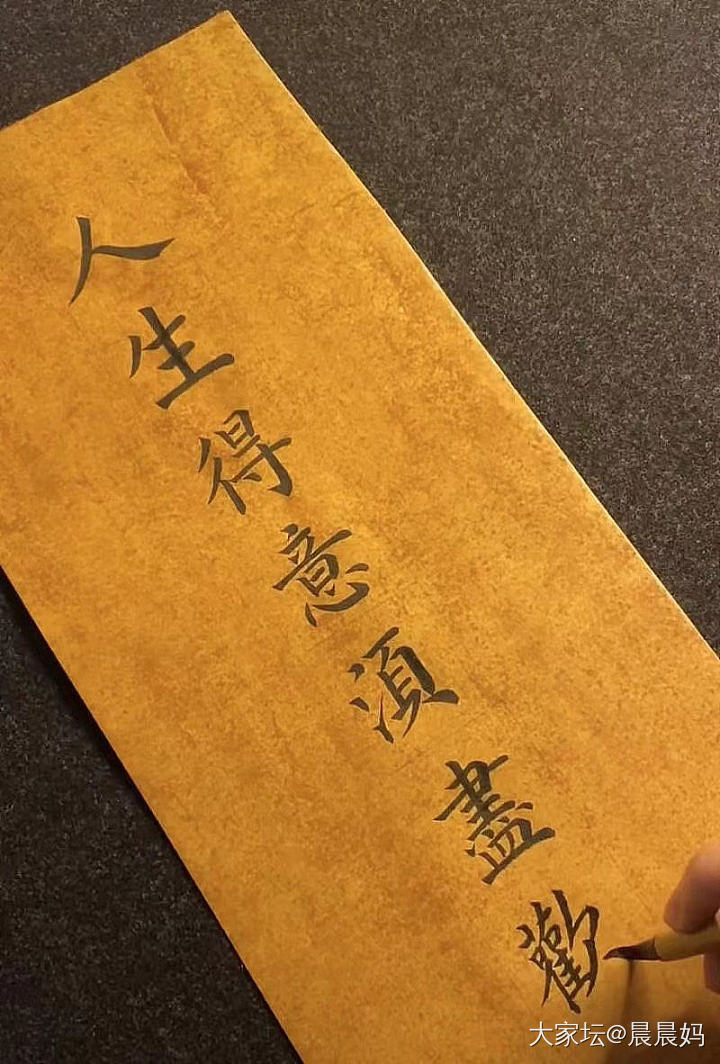 人生得意湏盡歡
大家坛@晨晨妈